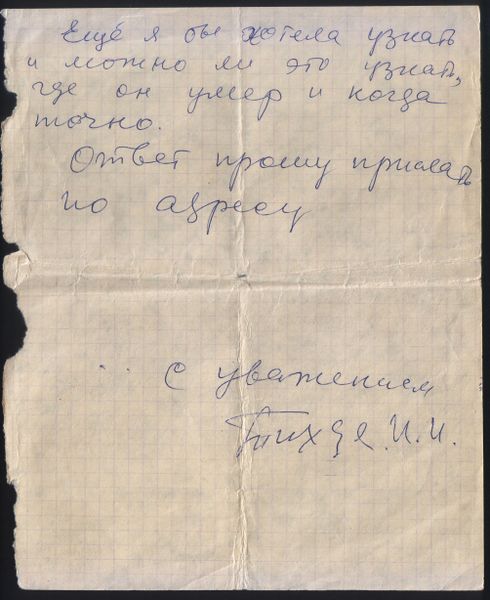 Ещё я бы хотела узнать
и можно ли это узнать,
где он умер и когда
точно.
Ответ прошу прислать
по адресу
с уважением
И.И.